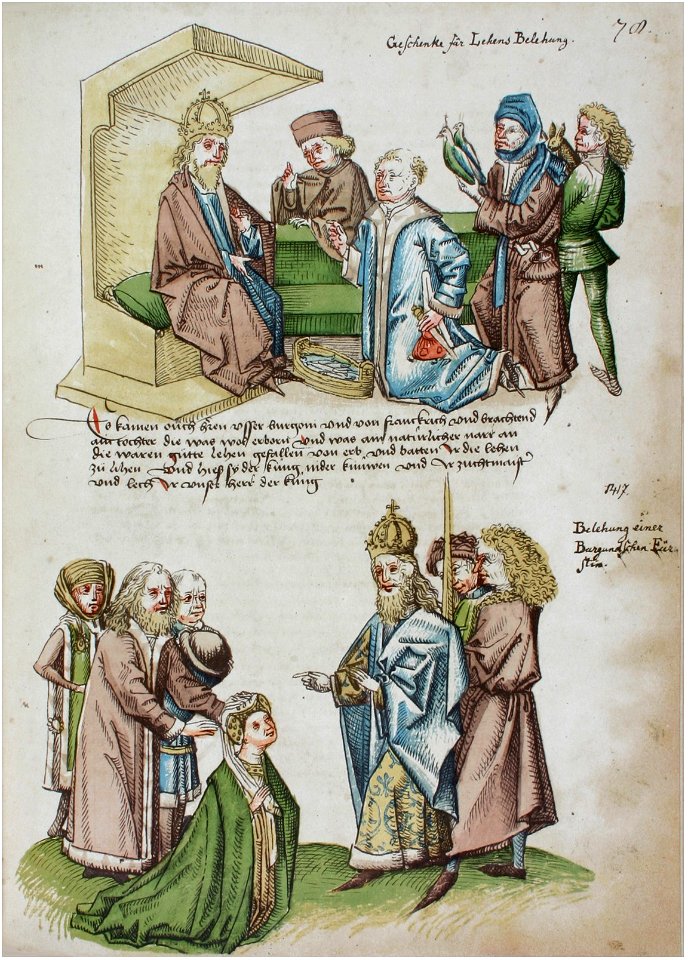 78.
Geschenke für Lehens Belehung.
Es kamen ouch herren usser burgom und von franckrich und brachtend
ain tochter die was wol erborn Und was ain natürlicher narr an
die waren gütte lehen gefallen von erb und batten Ir die lehen
zu lihen Und hieß sy der kung nider knuwen und Ir zuchtmaist
und lech Ir unser herr der kung
1417.
Belehung einer
Burgundschen Für-
stin.